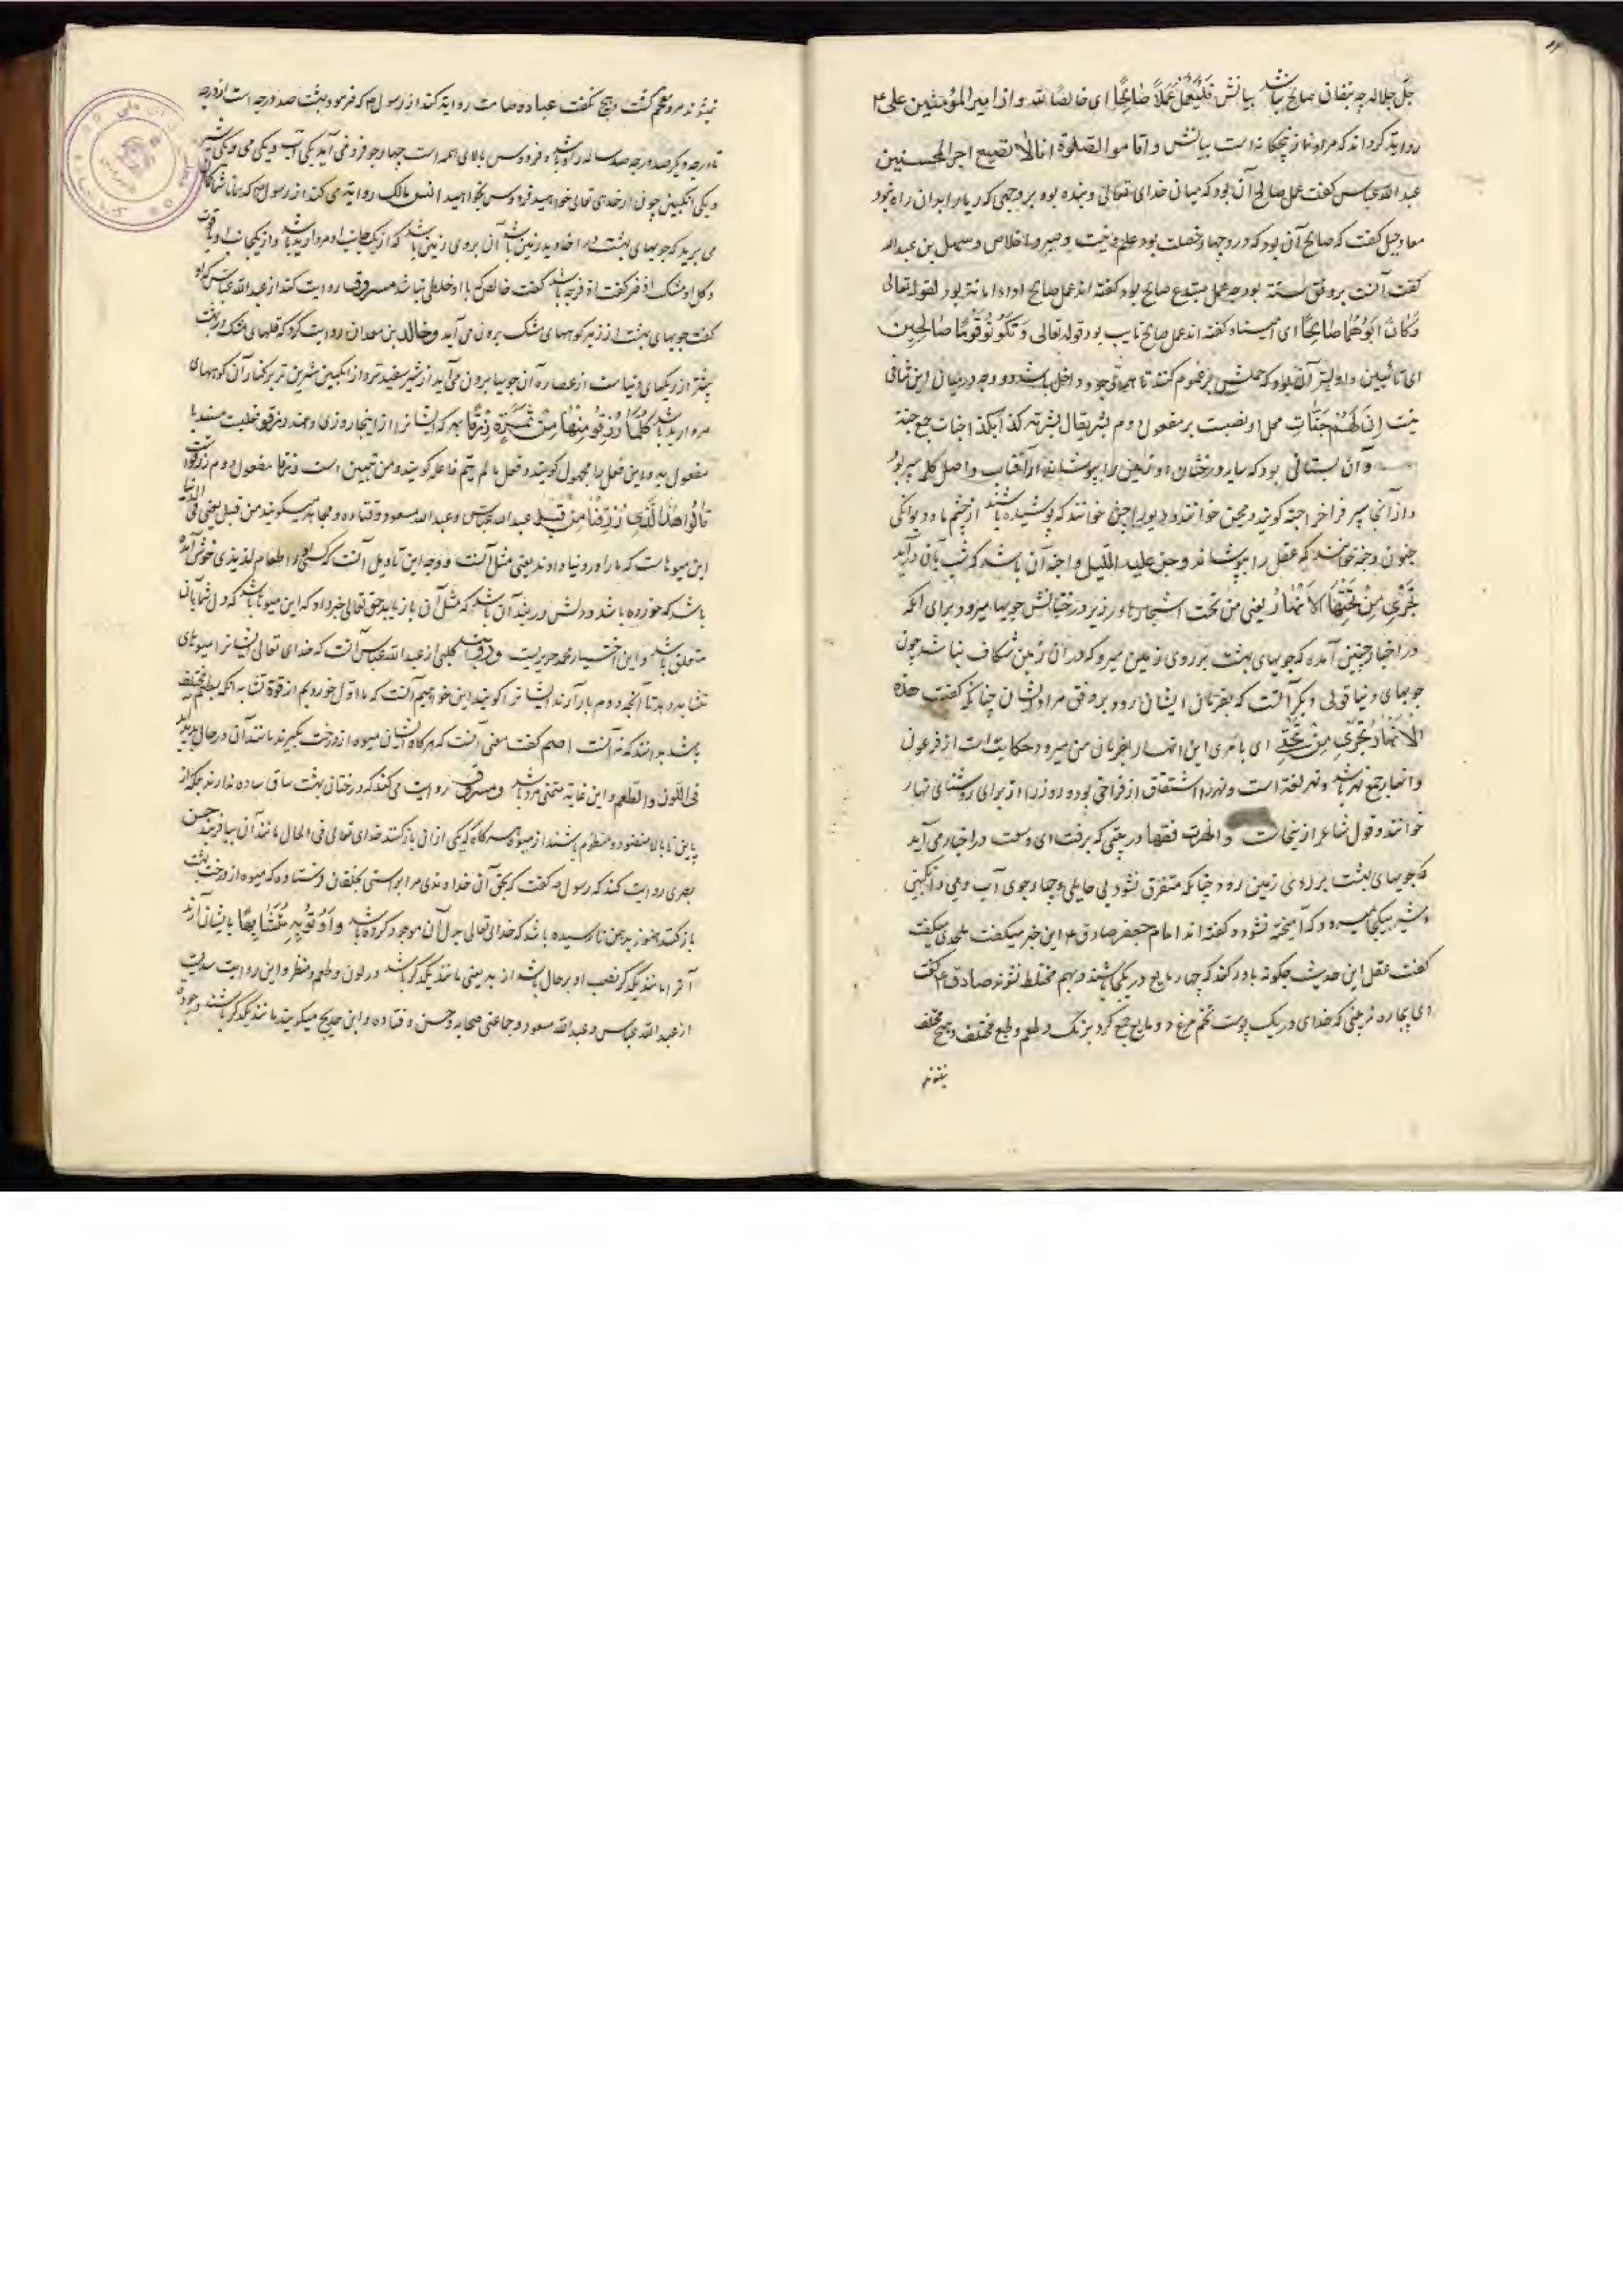 جلّ جلاله چه منافق صالح نباشد بیانش فَلْیَعْمَلْ عَمَلًا صَالِحًا ای خالصًا لله و از امیر المؤمنین علی ع
روایت کرده‌اند که مراد نماز پنجگانه است بیانش و اقاموا الصلوة انا لا نضیع اجر المحسنین
عبد الله عباس گفت عمل صالح آن بود که میان خدای تعالی و بنده بود بر وجهی که ریا را بدان راه نبود
معاذ جبل گفت که صالح آن بود که درو چهار خصلت بود علم و نیت و صبر و اخلاص و سهل بن عبد الله
گفت آنست بر وفق سنت بود چه عمل مبتدع صالح نبود و گفته اند عمل صالح اداء امانت بود لقوله تعالی
وَكَانَ اَبُوهُمَا صَالِحًا ای امینا و گفته اند عمل صالح تایب بود قوله تعالی وَتَكُونُوا قَوْمًا صَالِحِينَ
ای تائبین و اولیتر آن بود که حملش بر عموم کنند تا همه وجوه داخل باشد و وجوه در میان این منافی
نیست اِنَّ لَهُمْ جَنَّاتٍ محل او نصبست بر مفعول دوم بشر یقال بشرته کذا بکذا جنات جمع جنة
و آن بستانی بود که سایه درختان او زمین را بپوشاند از آفتاب و اصل کلمه ستر بود
و از آنجا سپر فراخ را جنة گویند و مجن خوانند و دیو را جن خوانند که پوشیده باشند از چشم ما و دیوانگی
جنون و جنه خوانند که عقل را بپوشاند و جن علیه اللیل و اجنه آن باشد که شب بآن درآید
تَجْرِی مِنْ تَحْتِهَا الْاَنْهَارُ یعنی من تحت اشجارها و زیر درختانش جویها میرود برای آنکه
در اخبار چنین آمده که جویهای بهشت بر روی زمین میرود که در آن زمین شکاف نباشد چون
جویهای دنیا قولی دیگر آنست که بفرمان ایشان رود بر وفق مراد ایشان چنانکه گفت هذه
الْاَنْهَارُ تَجْرِی مِنْ تَحْتِی ای بامری این انهار بفرمان من میرود حکایت است از فرعون
و انهار جمع نهر باشد و نهر لغة است و نهر را اشتقاق از فراخی بود و روز را از برای روشنائی نهار
خوانند و قول شاعر ازینجاست و انهرت فتقها در بیتی که برفت ای وسعت در اخبار می آید
که جویهای بهشت بر روی زمین رود چنانکه متفرق نشود بی حایلی و چهار جوی آب و می و انگبین
و شیر بیکجا میرود که آمیخته نشود و گفته اند امام جعفر صادق ع این خبر میگفت ملحدی میگفت
گفت عقل این حدیث چگونه باور کند که چهار مایع در یکجا باشند و بهم مختلط نشوند صادق ع گفت
ای بیچاره نه بینی که خدای در یک پوست تخم مرغ دو مایع جمع کرد برنگ و طعم و طبع مختلف و هیچ مختلف
نشوند
نمیشوند مرد ملحم گشت و هیچ نگفت عباده صامت روایت کند از رسول که فرمود بهشت صد درجه است از درجه
تا درجه دیگر صد ساله راه باشد و فردوس بالای همه است چهار جو فرو می آید یکی آب و یکی می و یکی شیر
و یکی انگبین چون از خدای تعالی خواهید فردوس بخواهید انس مالک روایت می کند از رسول که همانا شما گمان
می برید که جویهای بهشت در اخدود زمین باشد آن بر روی زمین باشد که از یک جانب او مروارید باشد و از یکجانب او یاقوت
و گل او مشک اذفر گفت اذفر چه باشد گفت خالص که با او خلطی نباشد مسروق روایت کند از عبد الله عباس که او
گفت جویهای بهشت از زیر کوههای مشک برون می آید و خالد بن معدان روایت کرد که تلهای مشک در بهشت
بیشتر از ریگهای دنیاست از عصاره آن جویها برون می آید از شیر سفیدتر و از انگبین شیرین تر بر کنار آن کوههای
مروارید باشد كُلَّمَا رُزِقُوا مِنْهَا مِنْ ثَمَرَةٍ رِزْقًا هرگه ایشان را از اینجا روزی دهند
مفعول به و این فعل را مجهول گویند و فعل ما لم یسم فاعله گویند و من تبیین است و رزقا مفعول دوم رزقوا است
قَالُوا هَذَا الَّذِی رُزِقْنَا مِنْ قَبْلُ عبد الله عباس و عبد الله مسعود و قتاده و مجاهد میگویند من قبل یعنی فی الدنیا
این میوهاست که ما را در دنیا دادند یعنی مثل آنست و وجه این تأویل آنست که کسی را طعام لذیذی خوش آمده
باشد که خورده باشد و دلش در بند آن باشد که مثل آن باز یابد حق تعالی خبر داد که این میوها باشد که دل شما بآن
متعلق باشد و این اختیار محمد جریرست کلبی از عبد الله عباس آنست که خدای تعالی ایشان را میوهای
باشد بدانند که نه آنست اصم گفت معنی آنست که هرگاه ایشان میوه از درخت بگیرند مانند آن در حال پدید آید
فی اللون و الطعم و این غایة متمنی مرد باشد و مسروق روایت می کند که درختان بهشت ساق ساده ندارند بلکه از
پایین تا بالا منضود و منظوم باشند از میوه هرگاه که یکی از آن باز کنند خدای تعالی فی الحال مانند آن بیافریند حسن
بصری روایت کند که رسول گفت که بحق آن خداوندی مرا براستی بخلقان فرستاده که میوه از درخت بهشت
باز کنند هنوز بدهن نارسیده باشد که خدای تعالی بدل آن موجود کرده باشد وَاُوتُوا بِهِ مُتَشَابِهًا بایشان آرند
آنرا مانند یکدیگر نصب او بر حال باشد از به یعنی مانند یکدیگر باشد در لون و طعم و منظر و این روایت سدیست
از عبد الله عباس و عبد الله مسعود و جماعتی صحابه و حسن و قتاده و ابن جریج میگویند مانند یکدیگر باشند در جودة